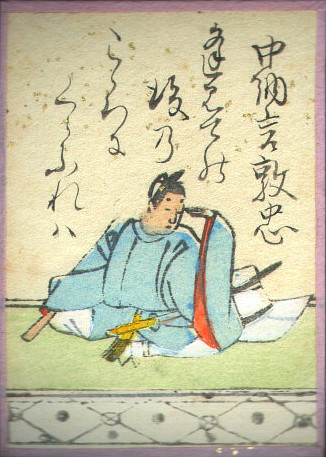 中納言敦忠
逢みての
後乃
こゝろに
くらふれハ